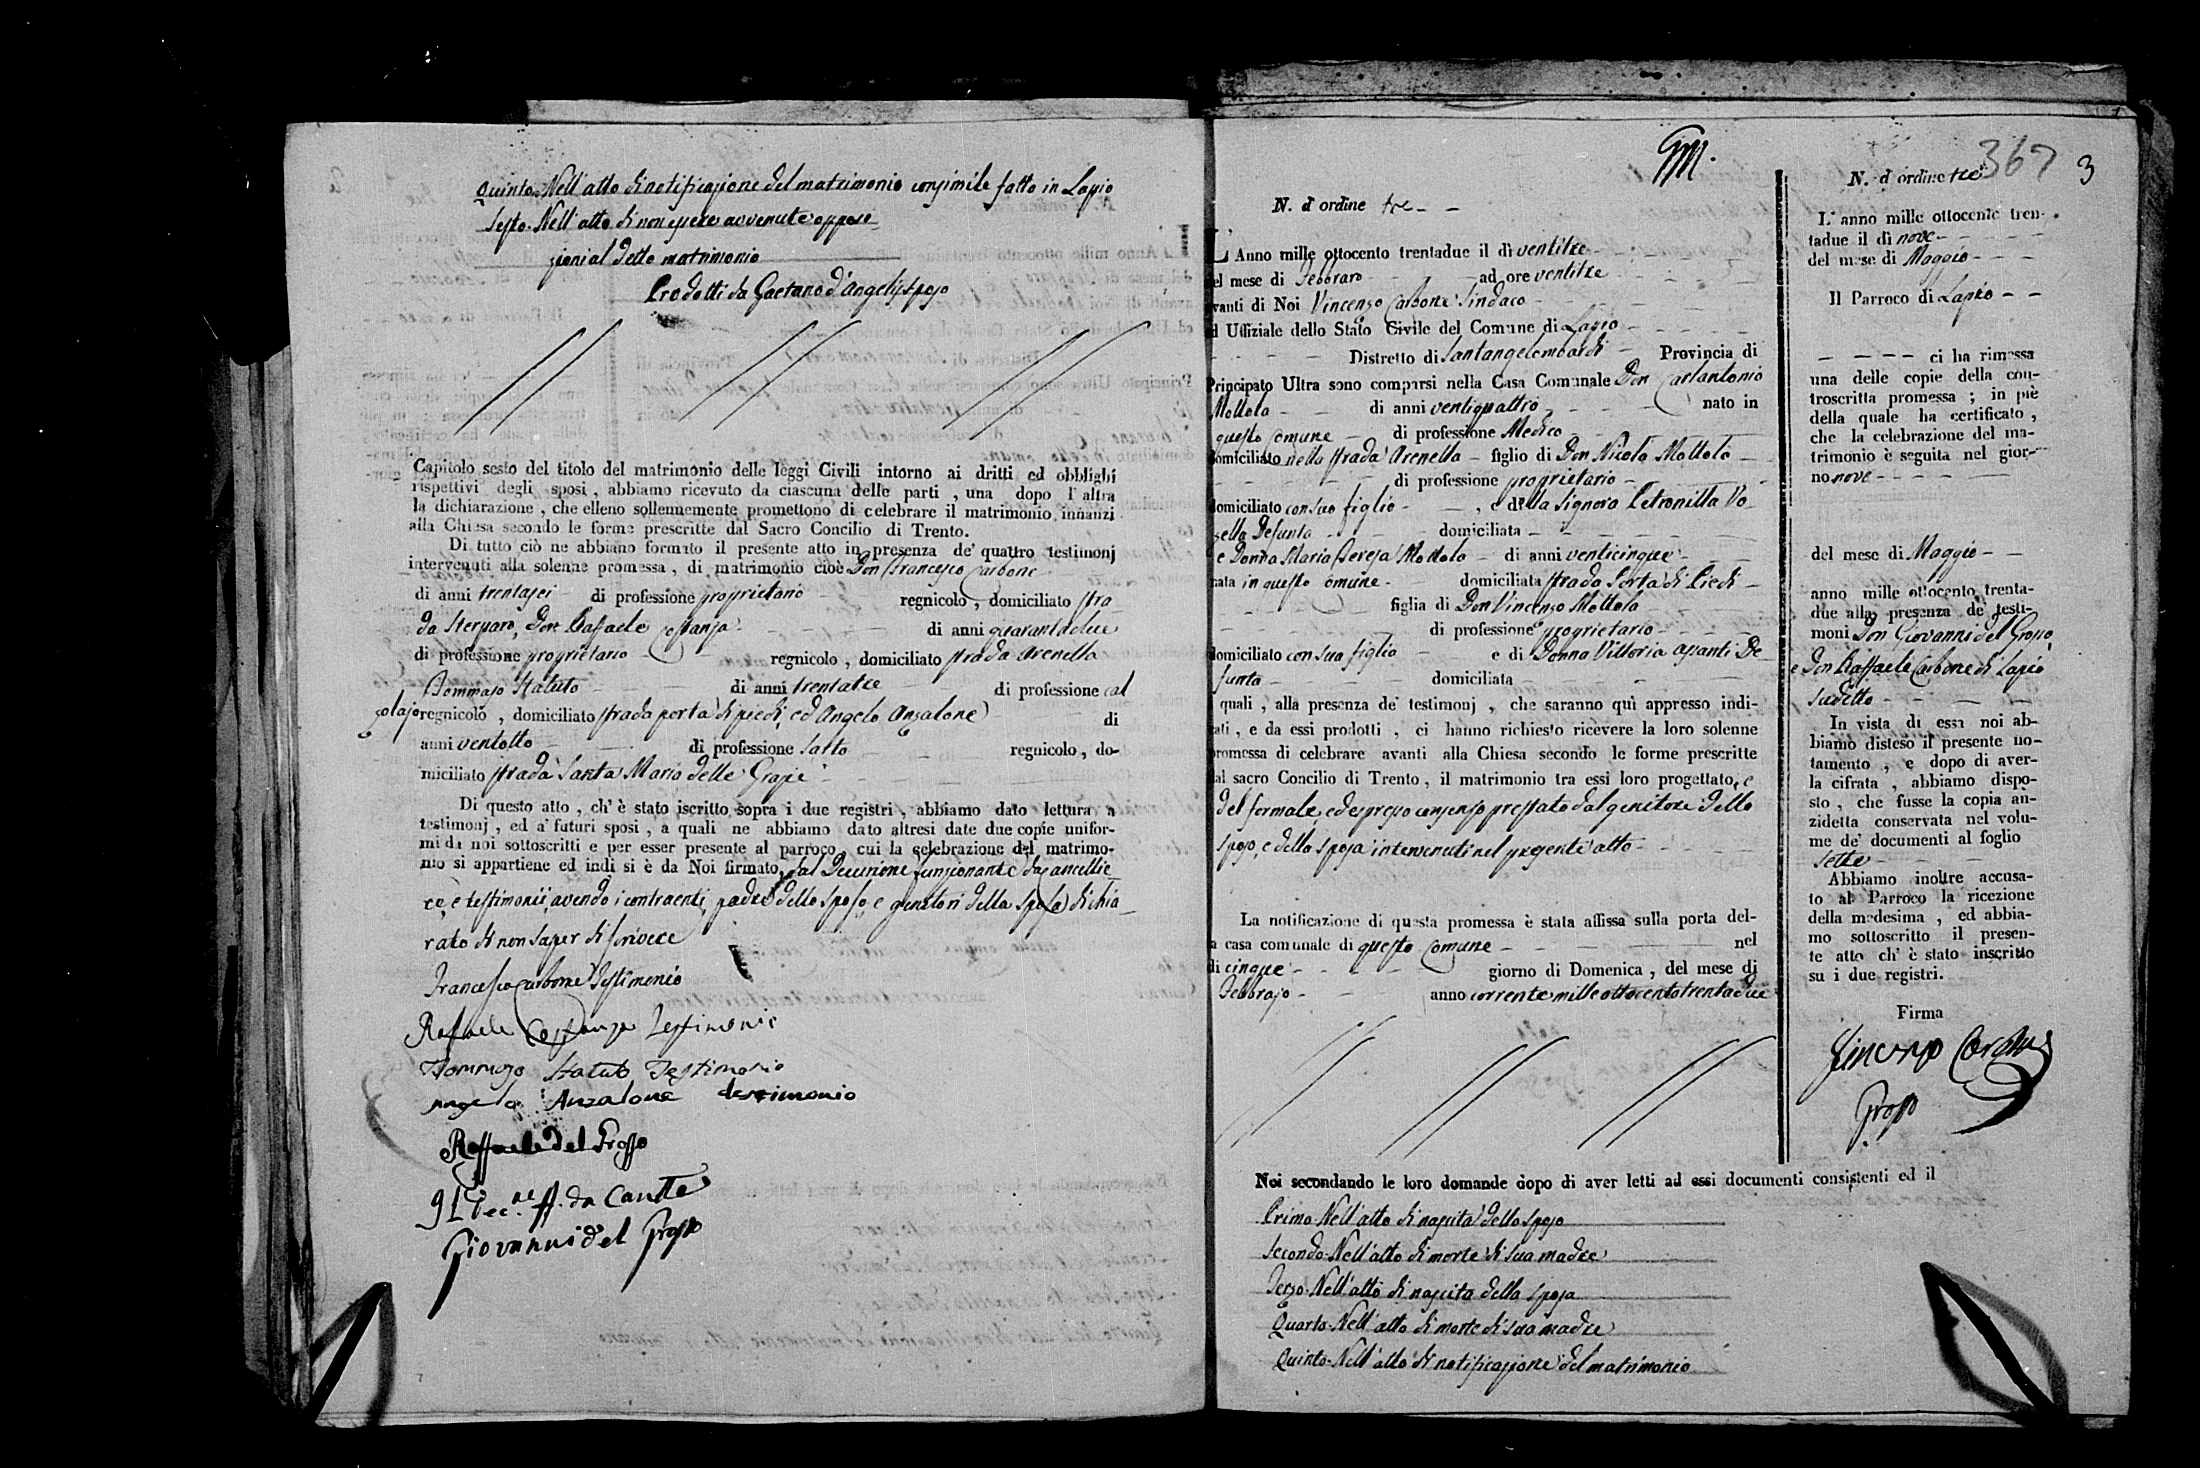 Quinto Nell'atto di notificazione del matrimonio consimile fatto in Lapio
Sesto Nell'atto di non essere avvenute oppose
zioni al detto matrimonio
Prodotti da Gaetano d'Angelis sposo
Capitolo sesto del titolo del matrimonio delle leggi Civili intorno ai dritti ed obblighi
rispettivi degli sposi, abbiamo ricevuto da ciascuna delle parti, una dopo l'altra
la dichiarazione, che elleno sollennemente promettono di celebrare il matrimonio innanzi
alla Chiesa secondo le forme prescritte dal Sacro Concilio di Trento.
Di tutto ciò ne abbiamo formato il presente atto in presenza de' quattro testimonj
intervenuti alla solenne promessa, di matrimonio cioè Don Francesco Carbone
di anni trentasei di professione proprietario regnicolo, domiciliato stra
da Don Raffaele Costanza di anni quarantadue
di professione proprietario regnicolo, domiciliato strada Arenella
Tommaso Statuto di anni trentatre di professione cal
zolajo regnicolo, domiciliato strada porta di piedi, ed Angelo Anzalone di
anni ventotto di professione Sarto regnicolo, do-
miciliato strada Santa Maria delle Grazie
Di questo atto, ch'è stato iscritto sopra i due registri, abbiamo dato lettura a
testimonj, ed a' futuri sposi, a quali ne abbiamo dato altresi date due copie unifor-
mi da noi sottoscritti e per esser presente al parroco, cui la celebrazione del matrimo-
nio si appartiene ed indi si è da Noi firmato, dal Decurione funzionante da cancellie
re, e testimonii, avendo i contraenti, padre dello sposo, e genitori della sposa dichia
rato di non saper di scrivere
Francesco Carbone Testimonio
Raffaele Costanza Testimonio
Tommaso Statuto Testimonio
Angelo Anzalone testimonio
Raffaele del Grosso
Il Dec.ne ff. da Canc.
Giovanni del Grosso
367 3
N. d'ordine tre
L'Anno mille ottocento trentadue il dì ventitre
del mese di Febbraro ad ore ventitre
avanti di Noi Vincenzo Carbone Sindaco
ed Uffiziale dello Stato Civile del Comune di Lapio
Distretto di Santangelombardi Provincia di
Principato Ultra sono comparsi nella Casa Comunale Don Carlantonio
Mottola di anni ventiquattro nato in
questo comune di professione Medico
domiciliato nella strada Arenella figlio di Don Nicola Mottola
di professione proprietario
domiciliato con suo figlio, e della Signora Petronilla Vo
sella Defunta domiciliata
e Donna Maria Teresa Mottola di anni venticinque
nata in questo comune domiciliata strada Porta di Piedi
figlia di Don Vincenzo Mottola
di professione proprietario
domiciliato con sua figlia e di Donna Vittoria De
funta domiciliata
quali, alla presenza de' testimonj, che saranno quì appresso indi-
cati, e da essi prodotti, ci hanno richiesto ricevere la loro solenne
promessa di celebrare avanti alla Chiesa secondo le forme prescritte
dal sacro Concilio di Trento, il matrimonio tra essi loro progettato, e
del formale, ed espresso consenso prestato dal genitore dello
sposo, e della sposa intervenuti nel presente atto
La notificazione di questa promessa è stata affissa sulla porta del-
la casa comunale di questo Comune nel
di cinque giorno di Domenica, del mese di
Febbrajo anno corrente mille ottocento trentadue
Noi secondando le loro domande dopo di aver letti ad essi documenti consistenti ed il
Primo Nell'atto di nascita dello sposo
Secondo Nell'atto di morte di sua madre
Terzo Nell'atto di nascita della sposa
Quarto Nell'atto di morte di sua madre
Quinto Nell'atto di notificazione del matrimonio
N. d'ordine tre
L'anno mille ottocento tren-
tadue il dì nove
del mese di Maggio
Il Parroco di Lapio
ci ha rimessa
una delle copie della con-
troscritta promessa; in piè
della quale ha certificato,
che la celebrazione del ma-
trimonio è seguita nel gior-
no nove
del mese di Maggio
anno mille ottocento trenta-
due alla presenza de' testi-
moni Don Giovanni del Grosso
e Don Raffaele Carbone di Lapio
sudetto
In vista di essa noi ab-
biamo disteso il presente no-
tamento, e dopo di aver-
la cifrata, abbiamo dispo-
sto, che fusse la copia an-
zidetta conservata nel volu-
me de' documenti al foglio
sette
Abbiamo inoltre accusa-
to al Parroco la ricezione
della medesima, ed abbia-
mo sottoscritto il presen-
te atto ch'è stato inscritto
su i due registri.
Firma
Vincenzo Carbone
Grosso